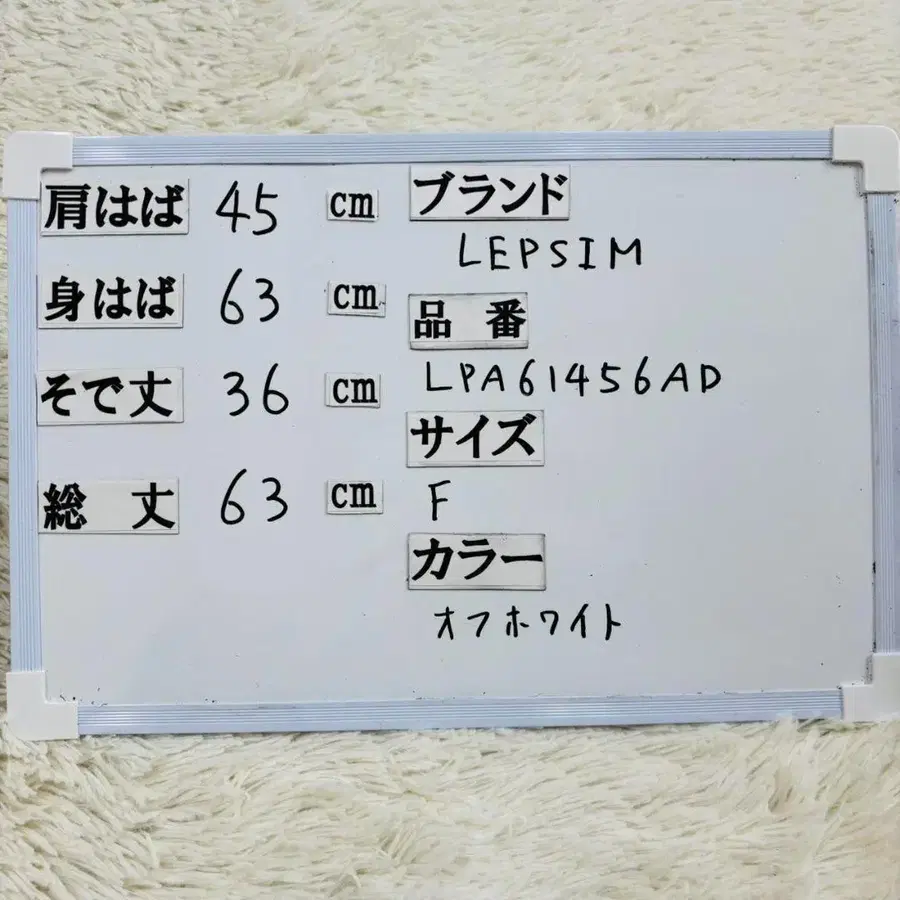 肩はば 45 cm
身はば 63 cm
そで丈 36 cm
総丈 63 cm
ブランド
LEPSIM
品番
LPA61456AD
サイズ
F
カラー
オフホワイト